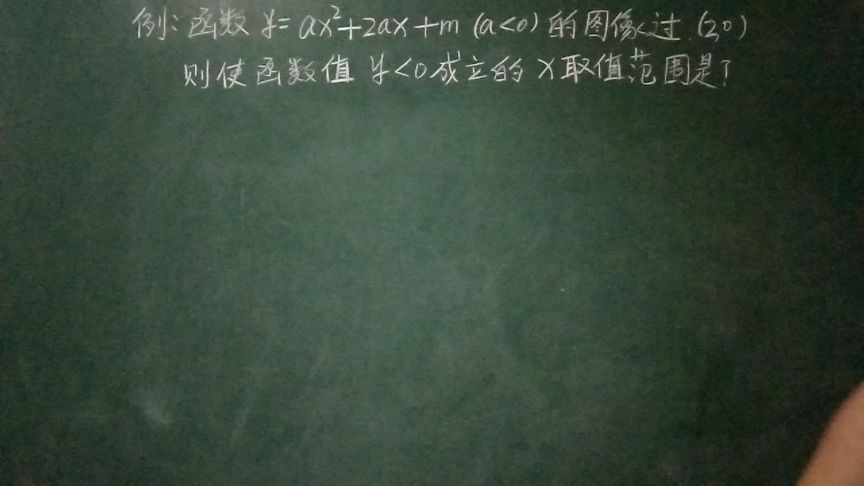 例:函数 y=ax²+2ax+m (a<0) 的图像过 (2,0)
则使函数值 y<0成立的 x取值范围是?